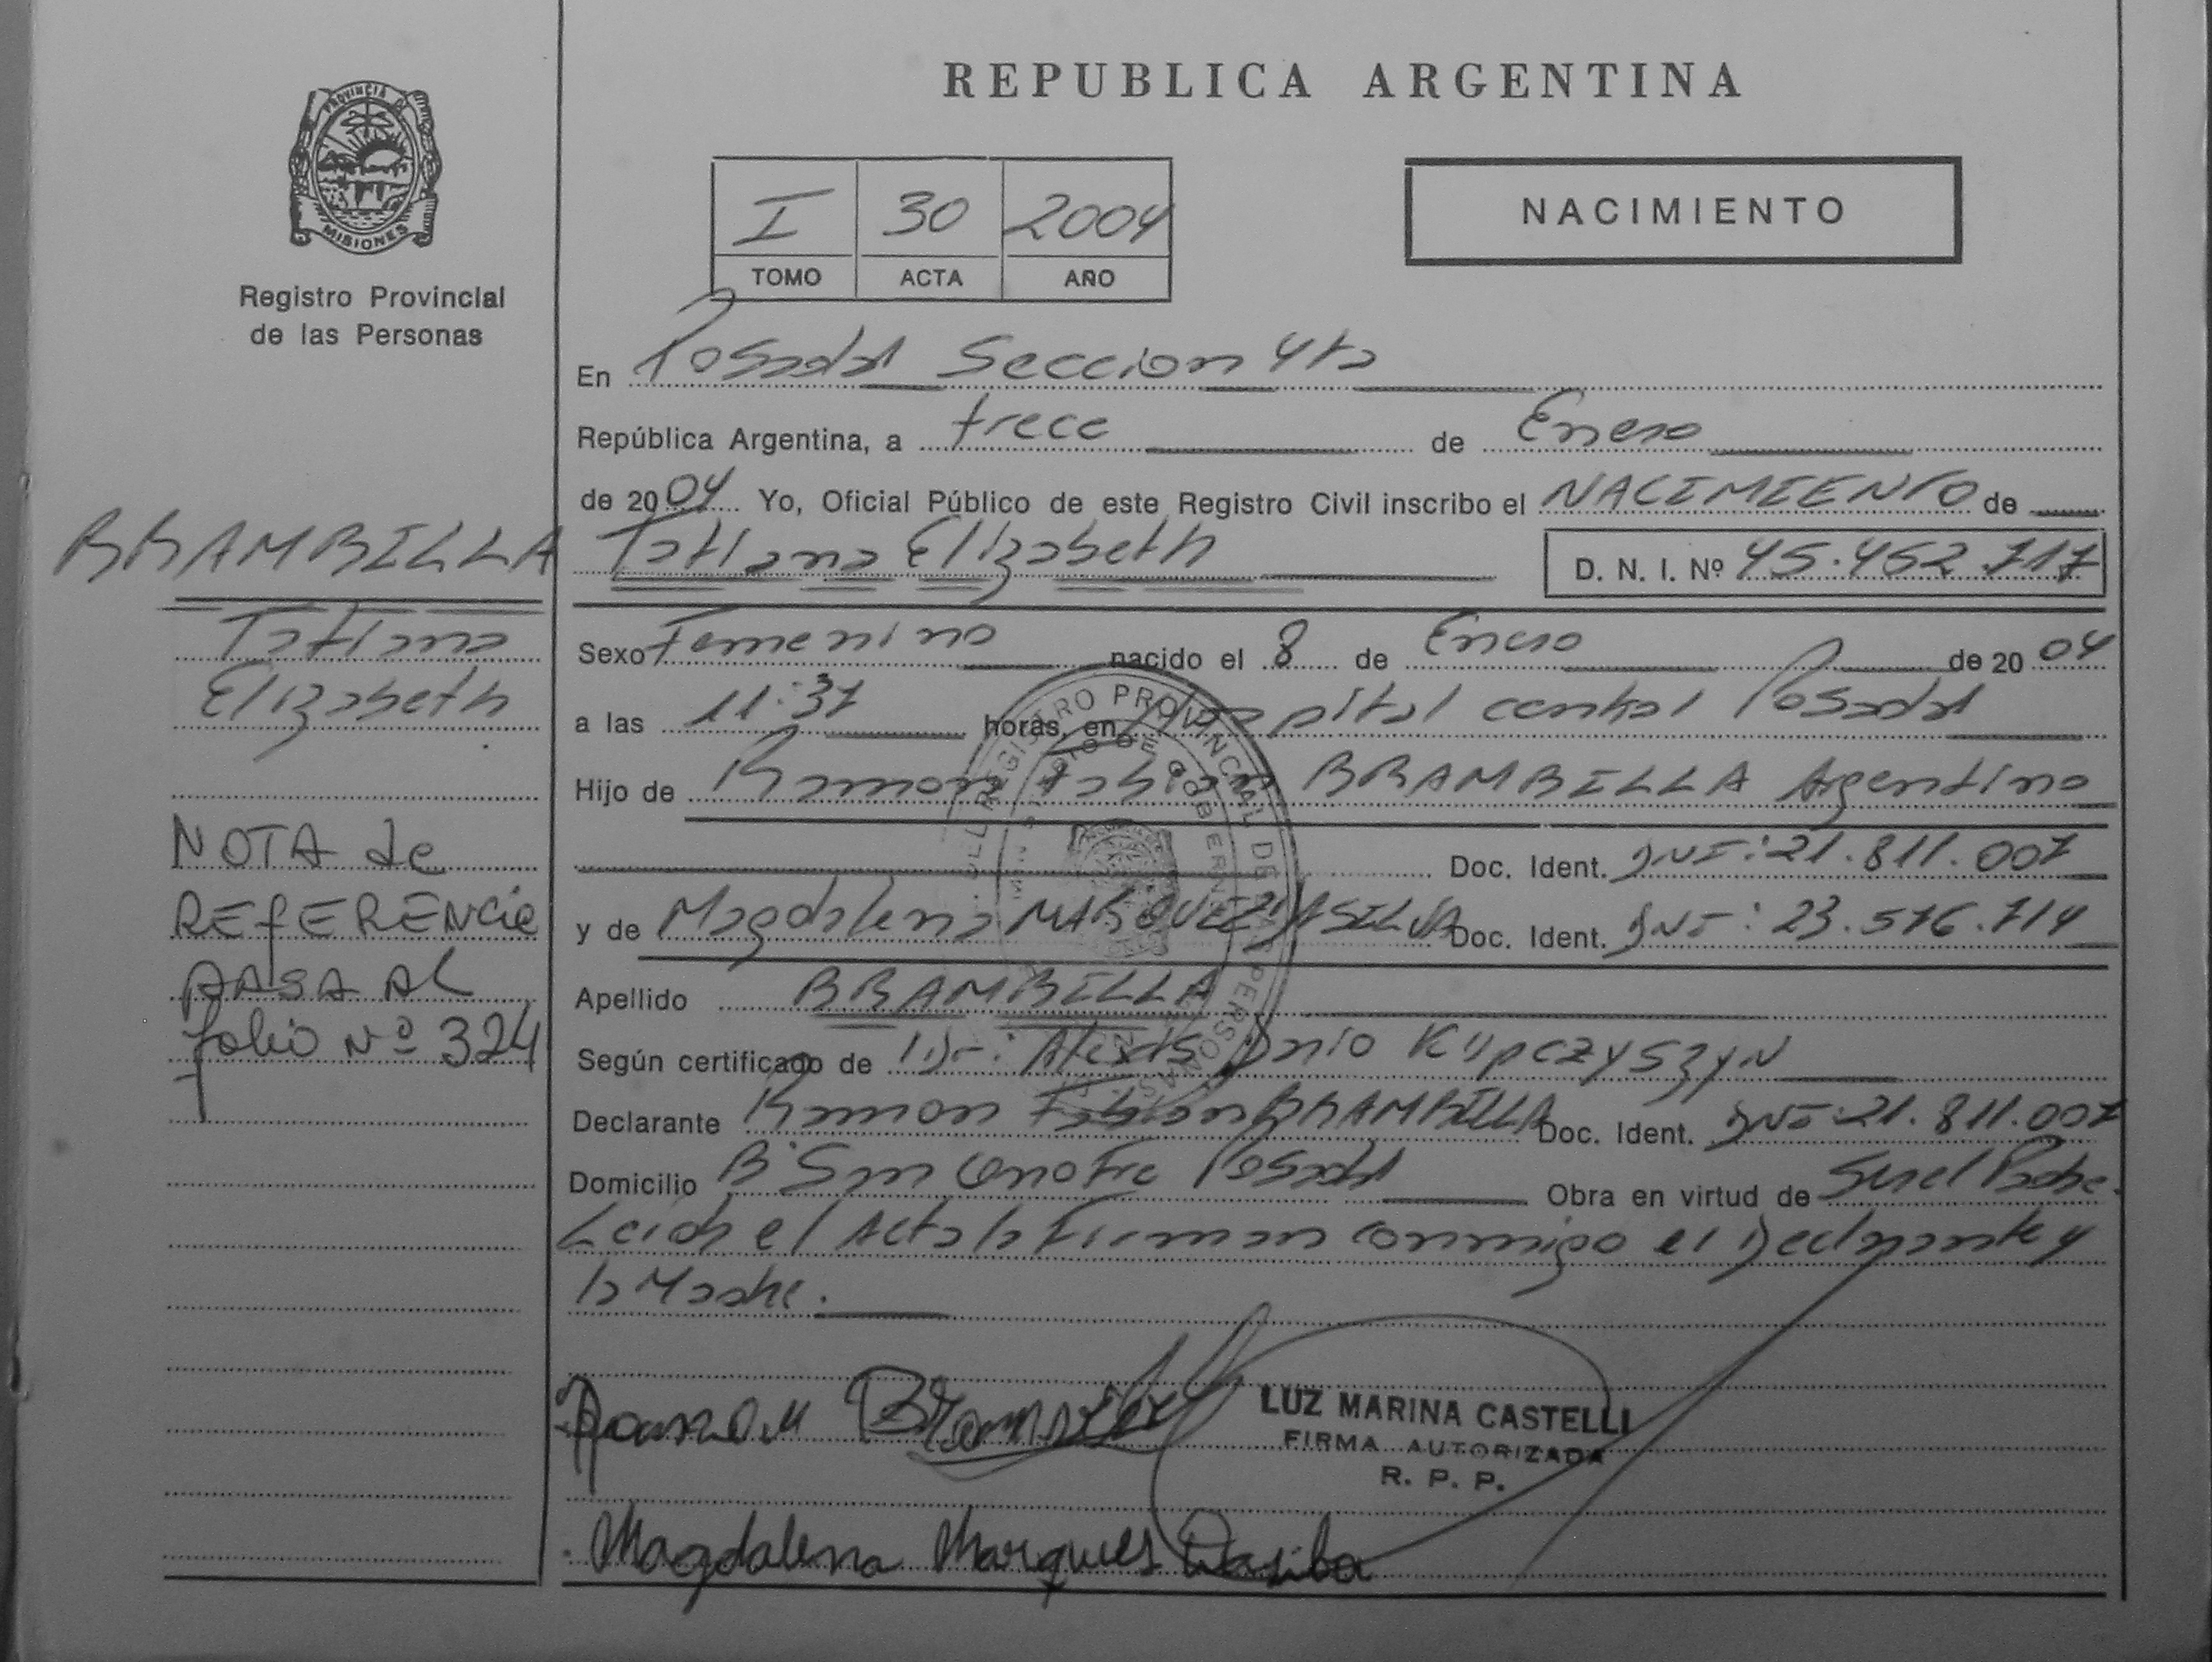 REPUBLICA ARGENTINA
PROVINCIA D
MISIONES
Registro Provincial
de las Personas
I 30 2004
TOMO ACTA AÑO
NACIMIENTO
En Posadas Seccion 4ta
República Argentina, a trece de Enero
de 2004 Yo, Oficial Público de este Registro Civil inscribo el NACIMIENTO de
BRAMBILLA Tatiana Elizabeth D. N. I. Nº 45.452.717
Tatiana
Elizabeth
Sexo Femenino nacido el 8 de Enero de 2004
a las 11:37 horas, en Hospital central Posadas
Hijo de Ramon Fabian BRAMBILLA Argentino
Doc. Ident. DNI: 21.811.007
y de Magdalena MARQUEZ DASILVA Doc. Ident. DNI: 23.576.714
Apellido BRAMBILLA
NOTA de
REfERENCia
PASA AL
folio Nº 324
Según certificado de Dr: Alexis Dario Kupczyszyn
Declarante Ramon Fabian BRAMBILLA Doc. Ident. DNI 21.811.007
Domicilio Bº Posadas Obra en virtud de Ser el Padre.
Leida el Acta la Firman conmigo el Declarante y
la Madre.
REGISTRO PROVINCIAL DE LAS PERSONAS
Ramon Brambilla
LUZ MARINA CASTELLI
FIRMA AUTORIZADA
R. P. P.
Magdalena Marques Dasilva